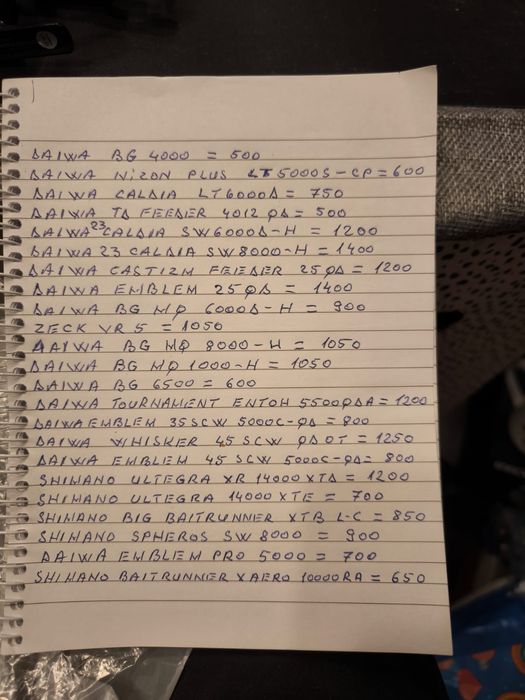 DAIWA BG 4000 = 500
DAIWA NIZON PLUS LT5000S-CP=600
DAIWA CALDIA LT6000D= 750
DAIWA TD FEEDER 4012 QD = 500
DAIWA 23 CALDIA SW6000D-H = 1200
DAIWA 23 CALDIA SW8000-H = 1400
DAIWA CASTIZM FEEDER 25QD = 1200
DAIWA EMBLEM 25QD = 1400
DAIWA BG MQ 6000D-H = 900
ZECK VR 5 = 1050
DAIWA BG MQ 8000-H = 1050
DAIWA BG MQ 1000-H = 1050
DAIWA BG 6500 = 600
DAIWA TOURNAMENT ENTOH 5500QDA=1200
DAIWA EMBLEM 35SCW 5000C-QD= 800
DAIWA WHISKER 45 SCW QD OT = 1250
DAIWA EMBLEM 45 SCW 5000C-QD= 800
SHIMANO ULTEGRA XR 14000 XTD = 1200
SHIMANO ULTEGRA 14000 XTE = 700
SHIMANO BIG BAITRUNNER XTB L-C = 850
SHIMANO SPHEROS SW 8000 = 900
DAIWA EMBLEM PRO 5000 = 700
SHIMANO BAITRUNNER XAERO 10000RA = 650